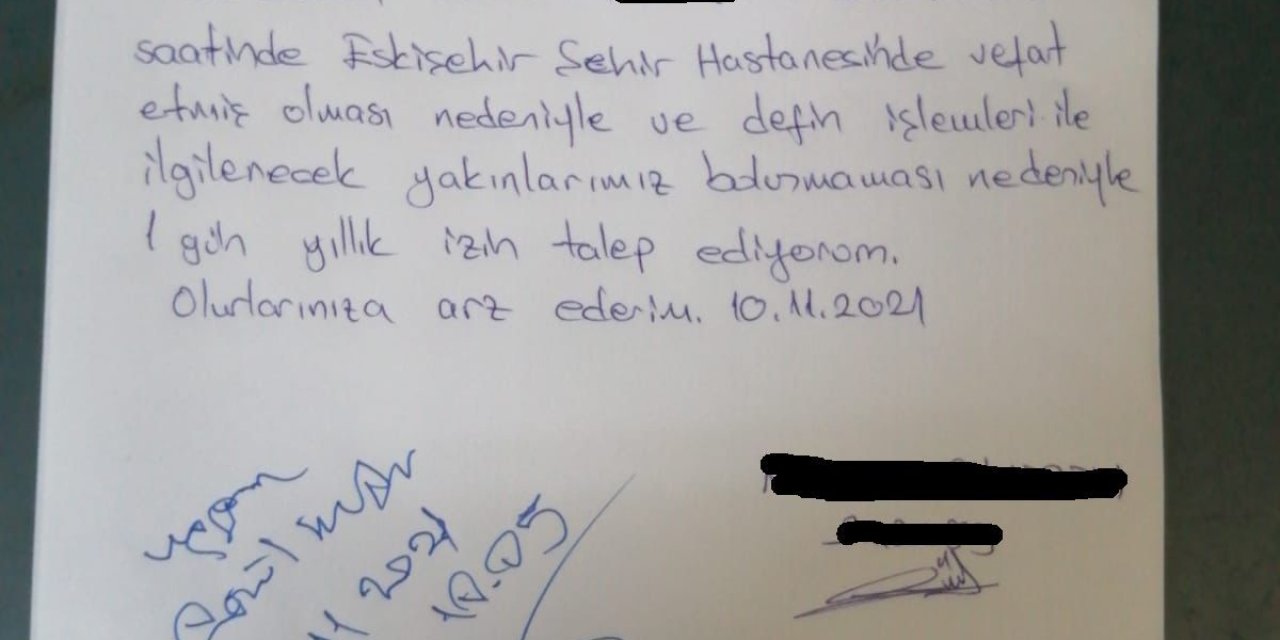 saatinde Eskişehir Şehir Hastanesinde vefat
etmiş olması nedeniyle ve defin işlemleri ile
ilgilenecek yakınlarımız bulunmaması nedeniyle
1 gün yıllık izin talep ediyorum.
Olurlarınıza arz ederim. 10.11.2021
11 2021
10.05